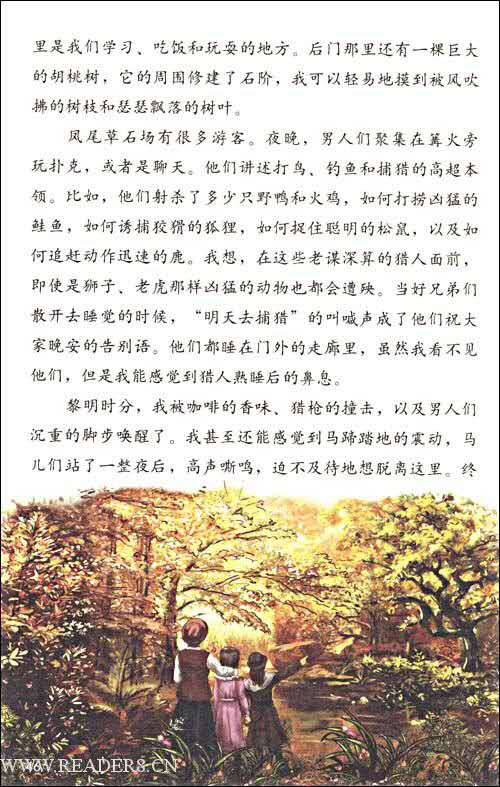 里是我们学习、吃饭和玩耍的地方。后门那里还有一棵巨大
的胡桃树，它的周围修建了石阶，我可以轻易地摸到被风吹
拂的树枝和瑟瑟飘落的树叶。
凤尾草石场有很多游客。夜晚，男人们聚集在篝火旁
玩扑克，或者是聊天。他们讲述打鸟、钓鱼和捕猎的高超本
领。比如，他们射杀了多少只野鸭和火鸡，如何打捞凶猛的
鲑鱼，如何诱捕狡猾的狐狸，如何捉住聪明的松鼠，以及如
何追赶动作迅速的鹿。我想，在这些老谋深算的猎人面前，
即使是狮子、老虎那样凶猛的动物也都会遭殃。当好兄弟们
散开去睡觉的时候，“明天去捕猎”的叫喊声成了他们祝大
家晚安的告别语。他们都睡在门外的走廊里，虽然我看不见
他们，但是我能感觉到猎人熟睡后的鼻息。
黎明时分，我被咖啡的香味、猎枪的撞击，以及男人们
沉重的脚步唤醒了。我甚至还能感觉到马蹄踏地的震动，马
儿们站了一整夜后，高声嘶鸣，迫不及待地想脱离这里。终
WWW.READER8.CN